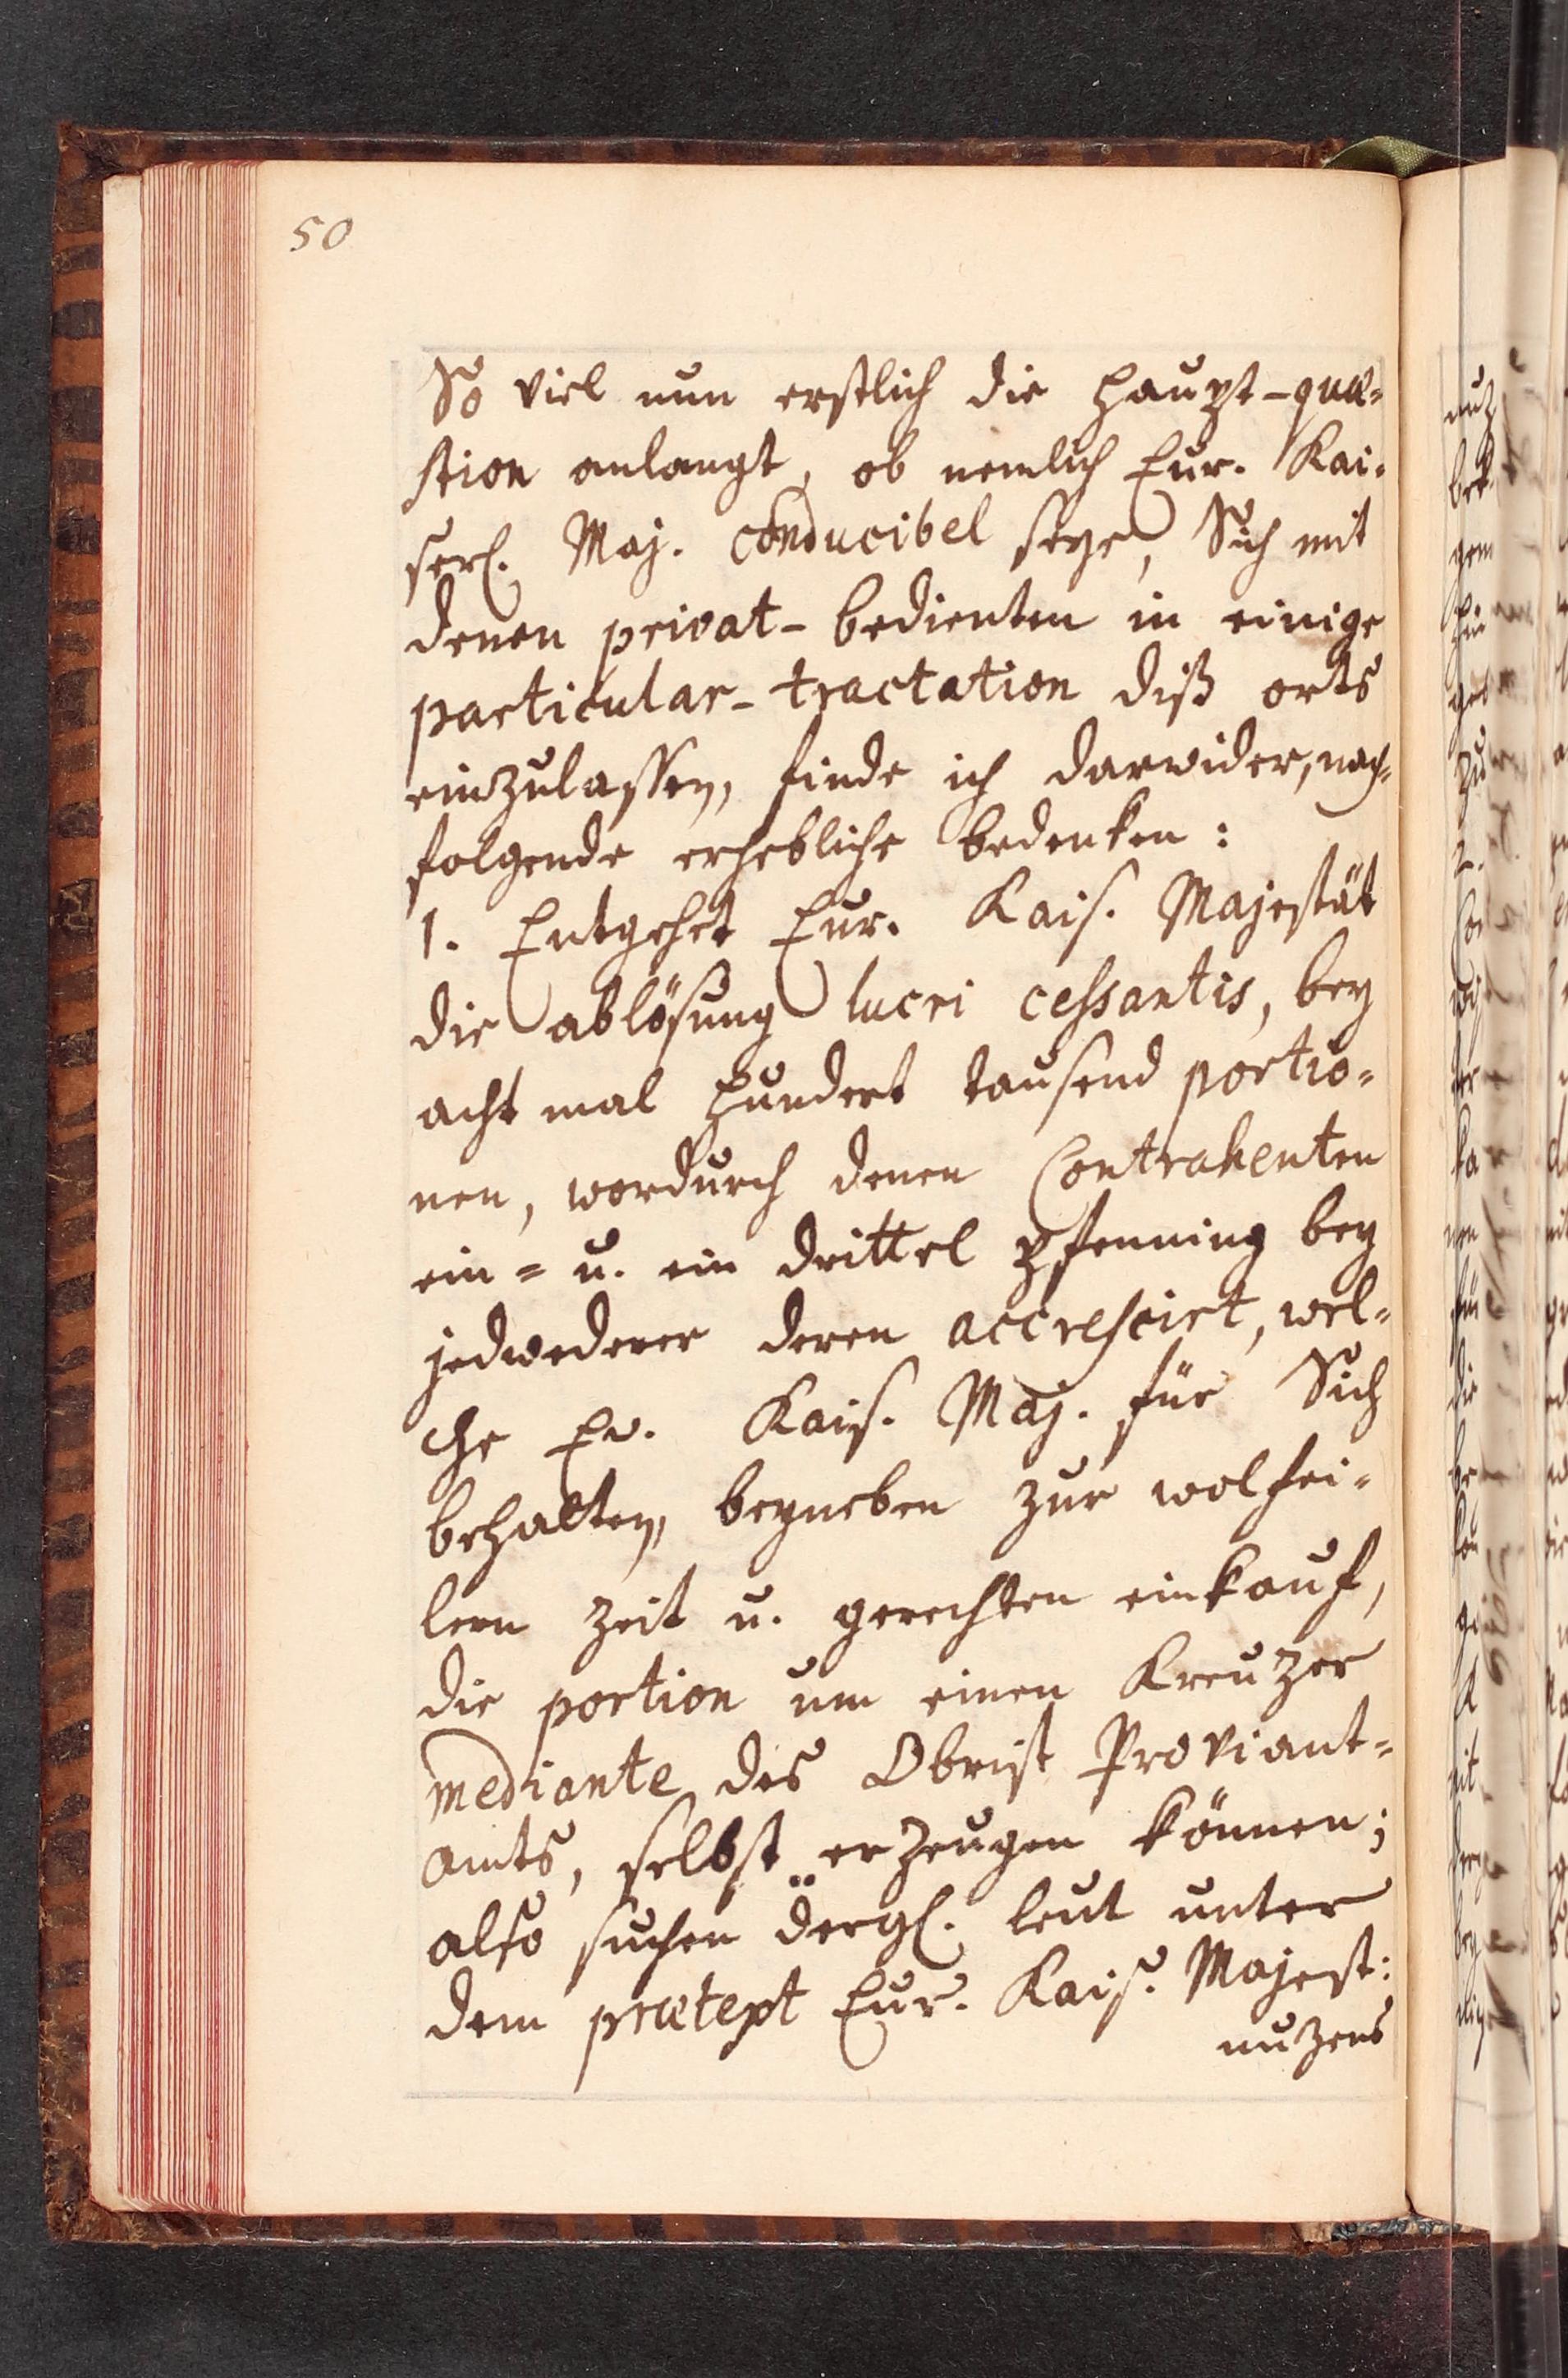 50
So viel nun erstlich die haupt-quæ-
stion anlangt, ob nemlich Eur. Kai-
serl. Maj. conducibel seye, Sich mit
denen privat-bedienten in einige
particular-tractation diß orts
einzulassen, finde ich darwider, nach-
folgende erhebliche bedenken:
1. Entgehet Eur. Kais. Majestät
die ablösung lucri cessantis, bey
acht mal hundert tausend portio-
nen, wordurch denen Contrahenten
ein- u. ein drittel pfenning bey
jedwederer deren accrescirt, wel-
che Ew. Kais. Maj. für Sich
behalten, beyneben zur wolfei-
lern zeit u. gerechten einkauf,
die portion um einen Kreuzer
mediante des Obrist Proviant-
amts, selbst erzeugen können;
also suchen dergl. leut unter
dem prætext Eur. Kais. Majest:
nuzens